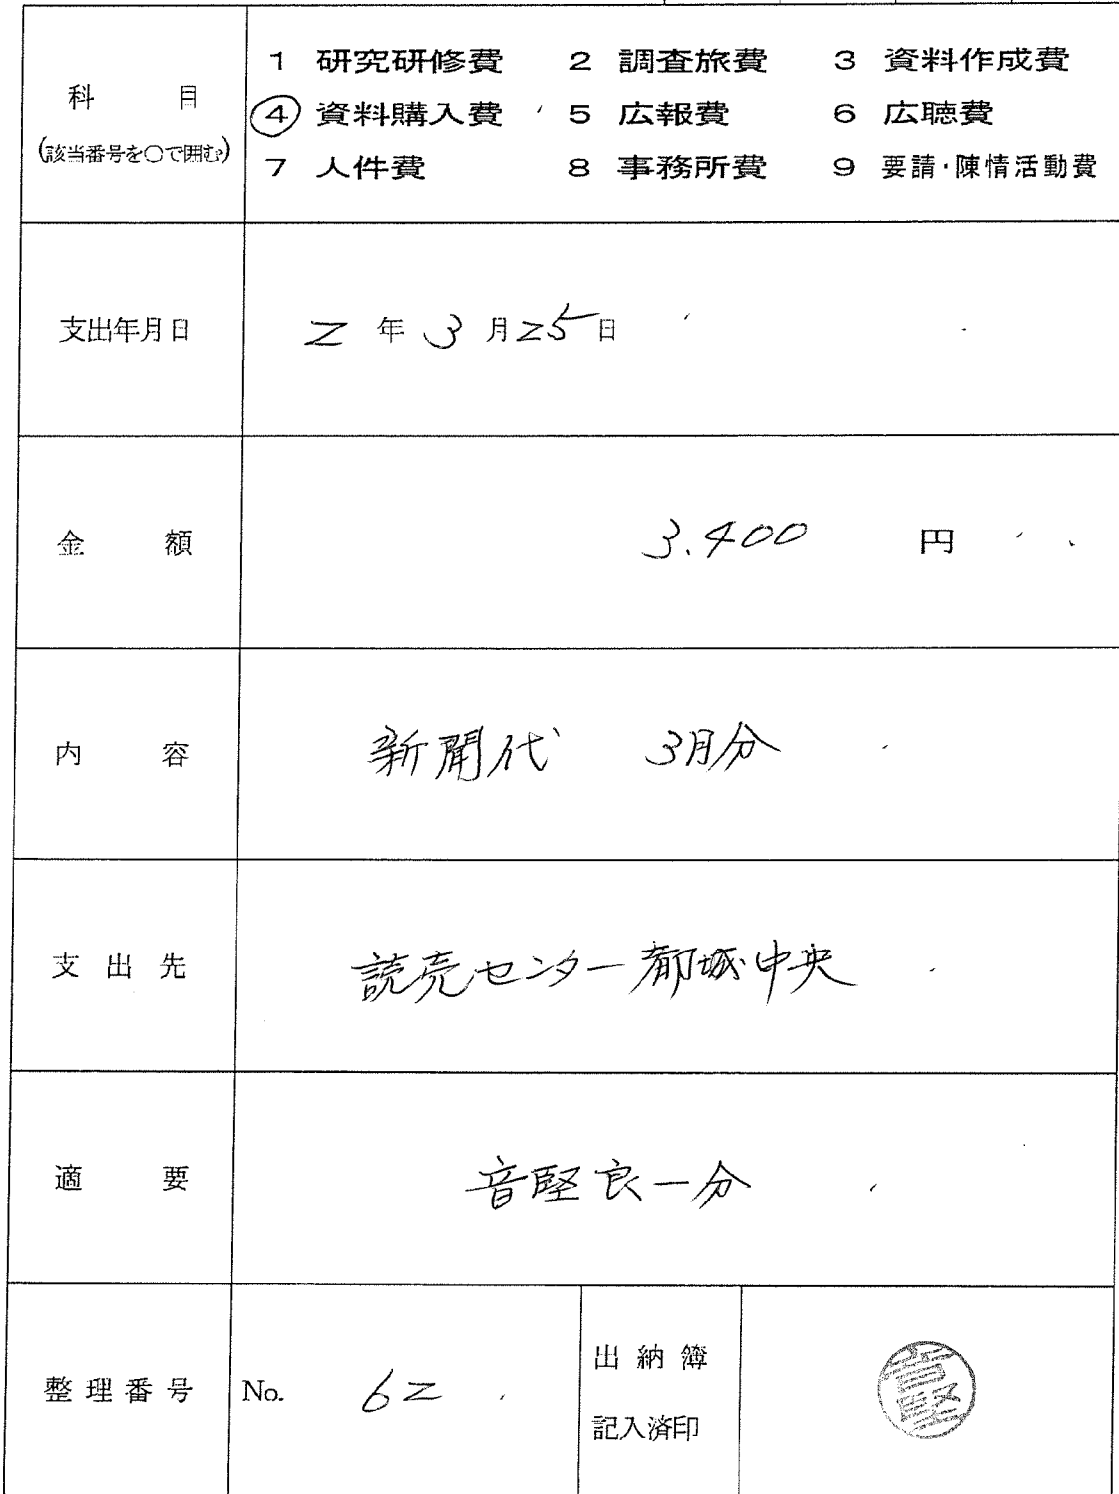 科 目
(該当番号を○で囲む)
1 研究研修費 2 調査旅費 3 資料作成費
④ 資料購入費 5 広報費 6 広聴費
7 人件費 8 事務所費 9 要請・陳情活動費
支出年月日 2 年 3 月 25 日
金 額 3.400 円
内 容 新聞代 3月分
支 出 先 読売センター都城中央
適 要 音堅良一分
整 理 番 号 No. 62
出 納 簿
記入済印
音堅